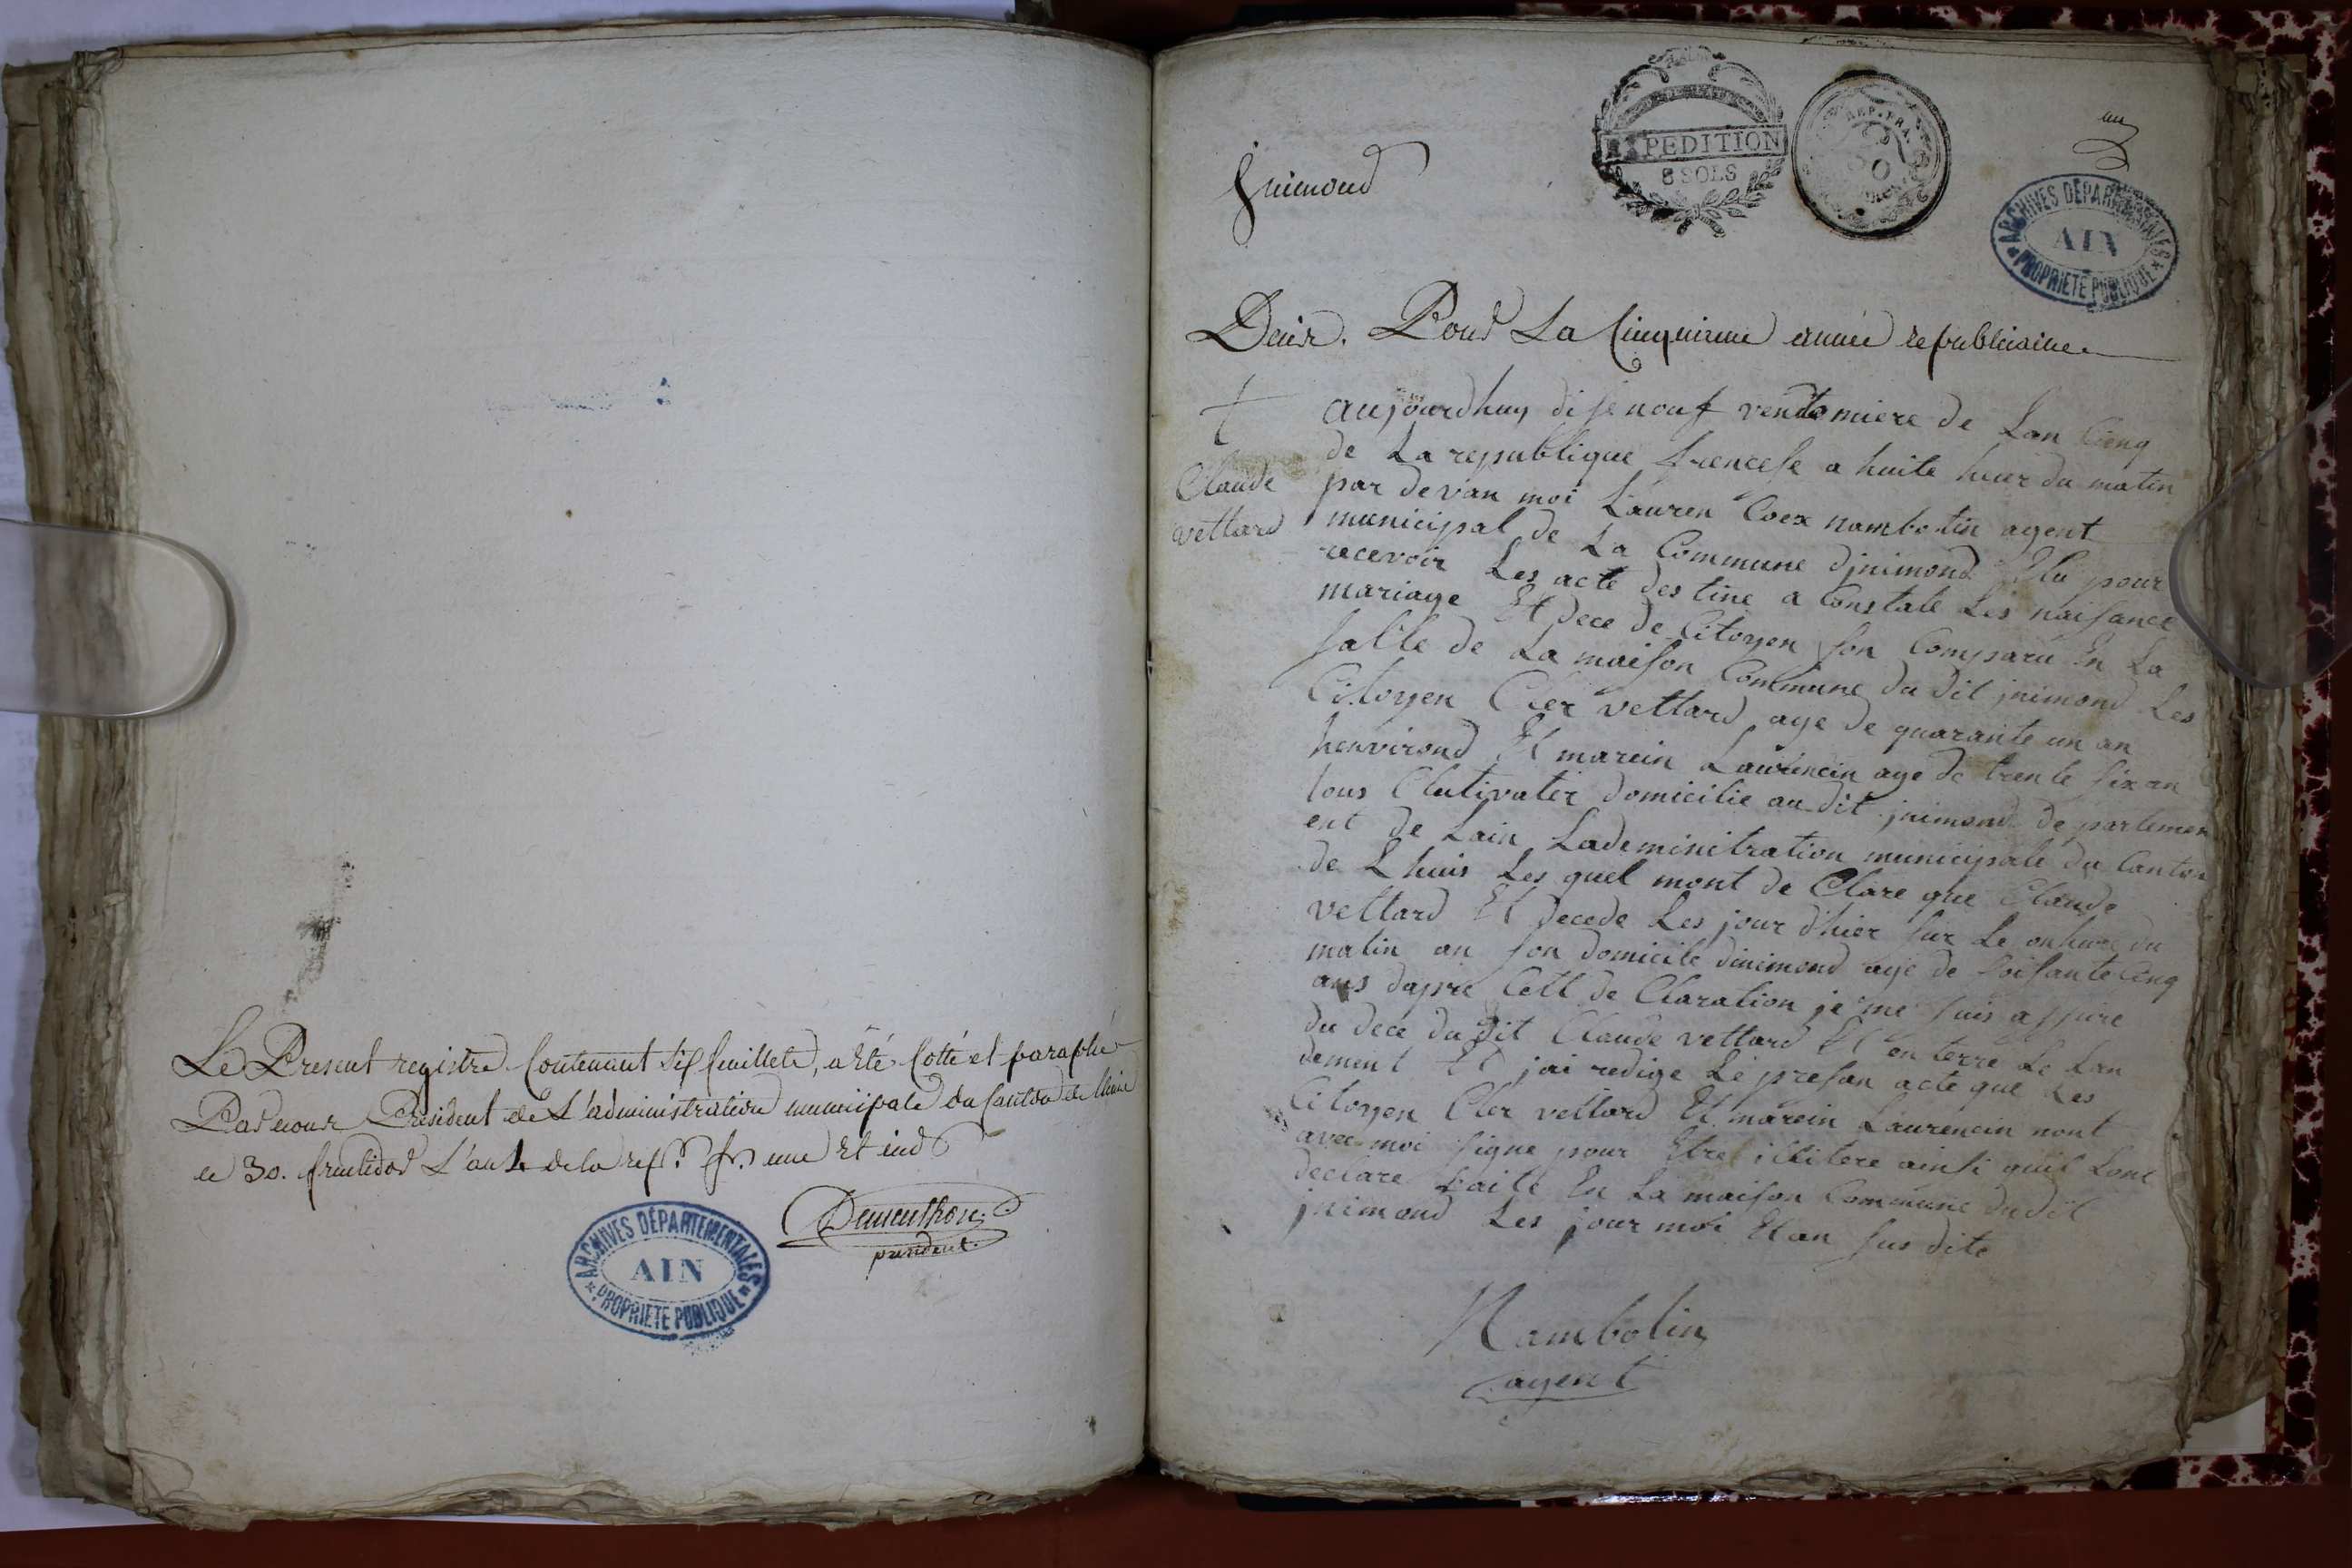 Le Present registre Contenant six feuillets, a été Cotté et paraphé
Par nous President de L'administration municipale du Canton de Lhuis
le 30. fructidor L'an 4 de la rep. fr. une et ind
Dementhon
president.
ARCHIVES DÉPARTEMENTALES
AIN
PROPRIETE PUBLIQUE
EXPEDITION
8 SOLS
REP. FRA.
ARCHIVES DÉPARTEMENTALES
AIN
PROPRIETE PUBLIQUE
jnimond
Decès. Pour La Cinquieme année republicaine
Claude
vettard
aujourdhuy disenouf vendemiere de Lan Cienq
de La republique frencese a huite heur du matin
par devan moi Lauren Coex nambotin agent
municipal de La Commune djnimond Elu pour
recevoir Les acte destine a Constate Les naisance
mariage Et dece de Citoyen son Comparu En La
salle de La maison Commune du dit jnimond Les
Citoyen Cler vettard age de quarante un an
henvirond Et marein Laurencin age de trente six an
tous Clutivater domicilie au dit jnimond departemen
ent de Lain Lademinitration municipale du Canton
de Lhuis Les quel mont de Clare que Claude
vettard Et decede Les jour d'hier sur Le onhure du
matin an son domicile dinimond age de soisante Cinq
ans dapre Cett de Claration je me suis assure
du dece du dit Claude vettard Et en terre Le Lan
demen t Et jai redige Le presan acte que Les
Citoyen Cler vettard Et marein Laurencin nont
avec moi signe pour Etre illitere ainsi quil Lont
declare Faite En La maison Commune du dit
jnimond Les jour moi Et an sus dite
Nambotin
agent